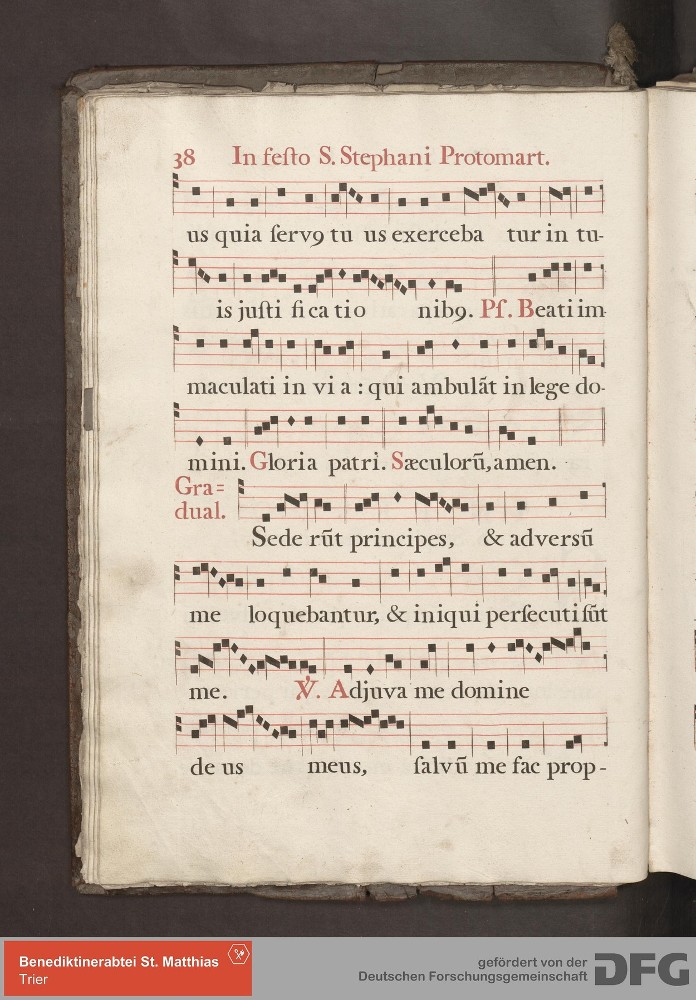 38 In feſto S. Stephani Protomart.
us quia ſervꝯ tu us exerceba tur in tu-
is juſti fi ca tio nibꝯ. Pſ. Beati im-
maculati in vi a : qui ambulãt in lege do-
mini. Gloria patri. Sæculorũ, amen.
Gra=
dual.
Sede rũt principes, & adversũ
me loquebantur, & iniqui perſecuti ſũt
me. ℣. Adjuva me domine
de us meus, ſalvũ me fac prop-
Benediktinerabtei St. Matthias
Trier
gefördert von der
Deutschen Forschungsgemeinschaft
DFG